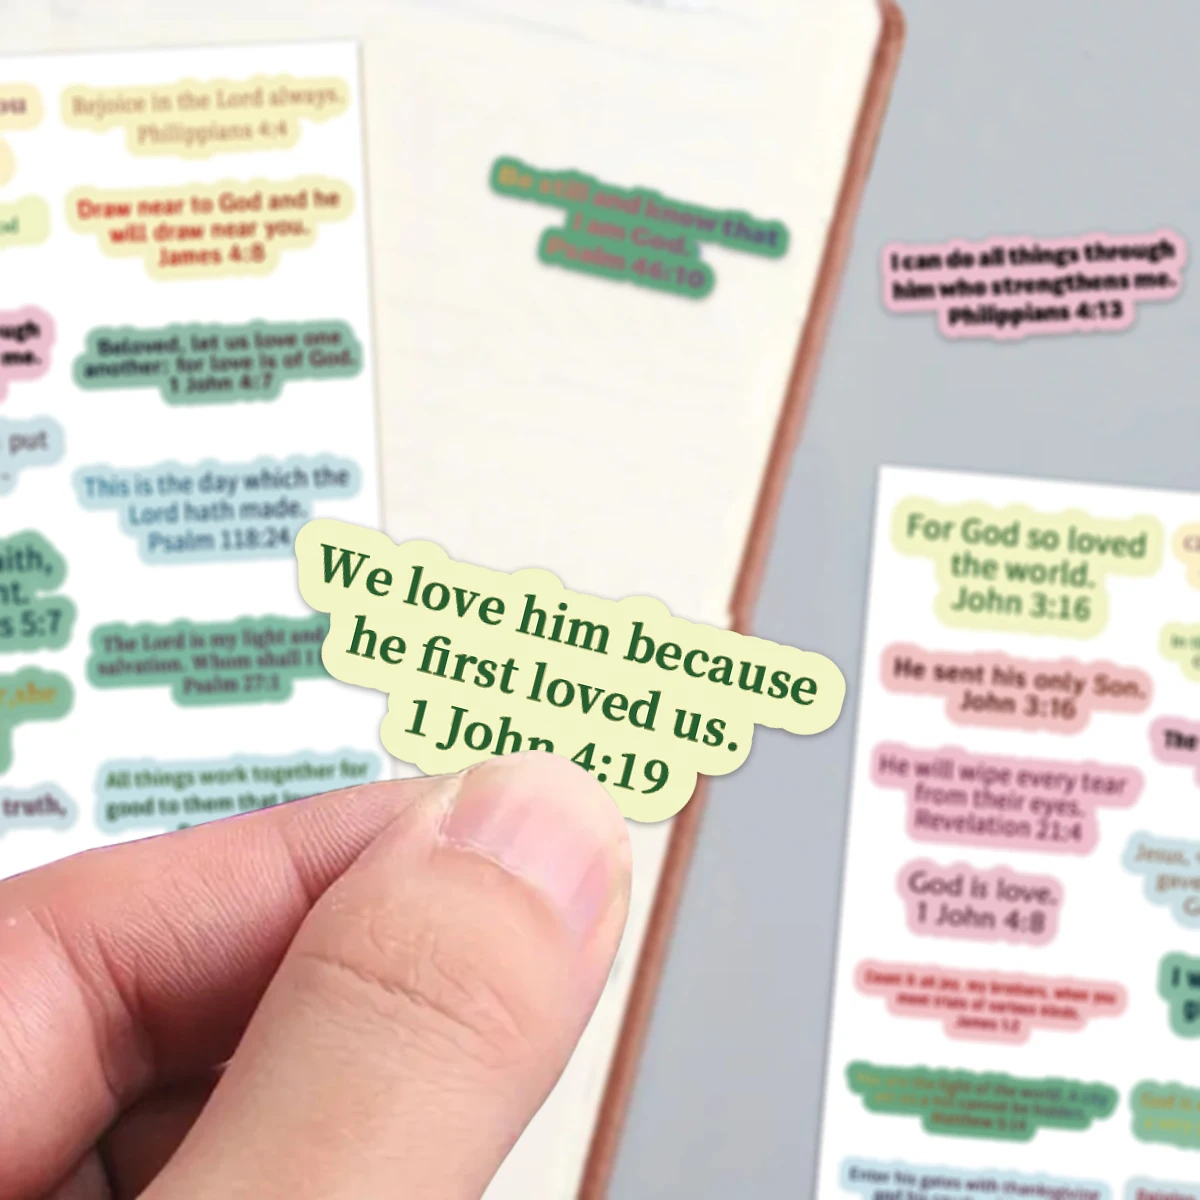 ou
Rejoice in the Lord always.
Philippians 4:4
Draw near to God and he
will draw near you.
James 4:8
ugh
me.
Beloved, let us love one
another: for love is of God.
1 John 4:7
put
This is the day which the
Lord hath made.
Psalm 118:24
aith,
nt.
s 5:7
The Lord is my light and
salvation. Whom shall I
Psalm 27:1
r,she
All things work together for
good to them that
truth,
Be still and know that
I am God.
Psalm 46:10
I can do all things through
him who strengthens me.
Philippians 4:13
We love him because
he first loved us.
1 John 4:19
For God so loved
the world.
John 3:16
He sent his only Son.
John 3:16
He will wipe every tear
from their eyes.
Revelation 21:4
God is love.
1 John 4:8
Count it all joy, my brothers, when you
meet trials of various kinds.
James 1:2
You are the light of the world. A city
set on a hill cannot be hidden.
Matthew 5:14
Enter his gates with thanksgiving
In
The
Jesus,
gave
G
I w
g
God is